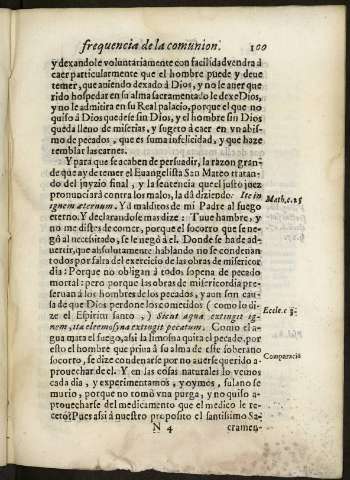 frequencia de la comunion. 100
y dexandole voluntariamente con facilidad vendra à
caer particularmente que el hombre puede y deue
temer, que auiendo dexado à Dios, y no le auer que
rido hospedar en su alma sacramentado le dexe Dios,
y no le admitira en su Real palacio, porque el que no
quiso à Dios quedese sin Dios, y el hombre sin Dios
queda lleno de miserias, y sugeto à caer en vn abis-
mo de pecados, que es suma infelicidad, y que haze
temblar las carnes.
Y para que se acaben de persuadir, la razon gran-
de que ay de temer el Euangelista San Mateo tratan-
do del juyzio final, y la sentencia que el justo juez
pronunciarà contra los malos, la dà diziendo: Ite in
ignem æternum. Yd malditos de mi Padre al fuego
eterno. Y declarandose mas dize: Tuue hambre, y
no me distes de comer, porque el socorro que se ne-
gò al necesitado, se le negò à el. Donde se ha de ad-
uertir, que absolutamente hablando no se condenan
todos por falta del exercicio de las obras de misericor
dia: Porque no obligan à todos sopena de pecado
mortal: pero porque las obras de misericordia pre-
seruan à los hombres de los pecados, y aun son cau-
sa de que Dios perdone los cometidos (como lo di-
ze el Espiritu santo,) Sicut aqua extingit ig-
nem, ita eleemosyna extingit pecatum. Como el a-
gua mata el fuego, assi la limosna quita el pecado, por
esto el hombre que priua à su alma de este soberano
socorro, se dize condenarse por no auerse querido a-
prouechar de el. Y en las cosas naturales lo vemos
cada dia, y experimentamos, y oymos, fulano se
murio, porque no tomò vna purga, y no quiso a-
prouecharse del medicamento que el medico le re-
cetò: Pues assi à nuestro proposito el santissimo Sa-
N 4 cramen-
Math. c. 25
Eccle. c 3.
Comparacio